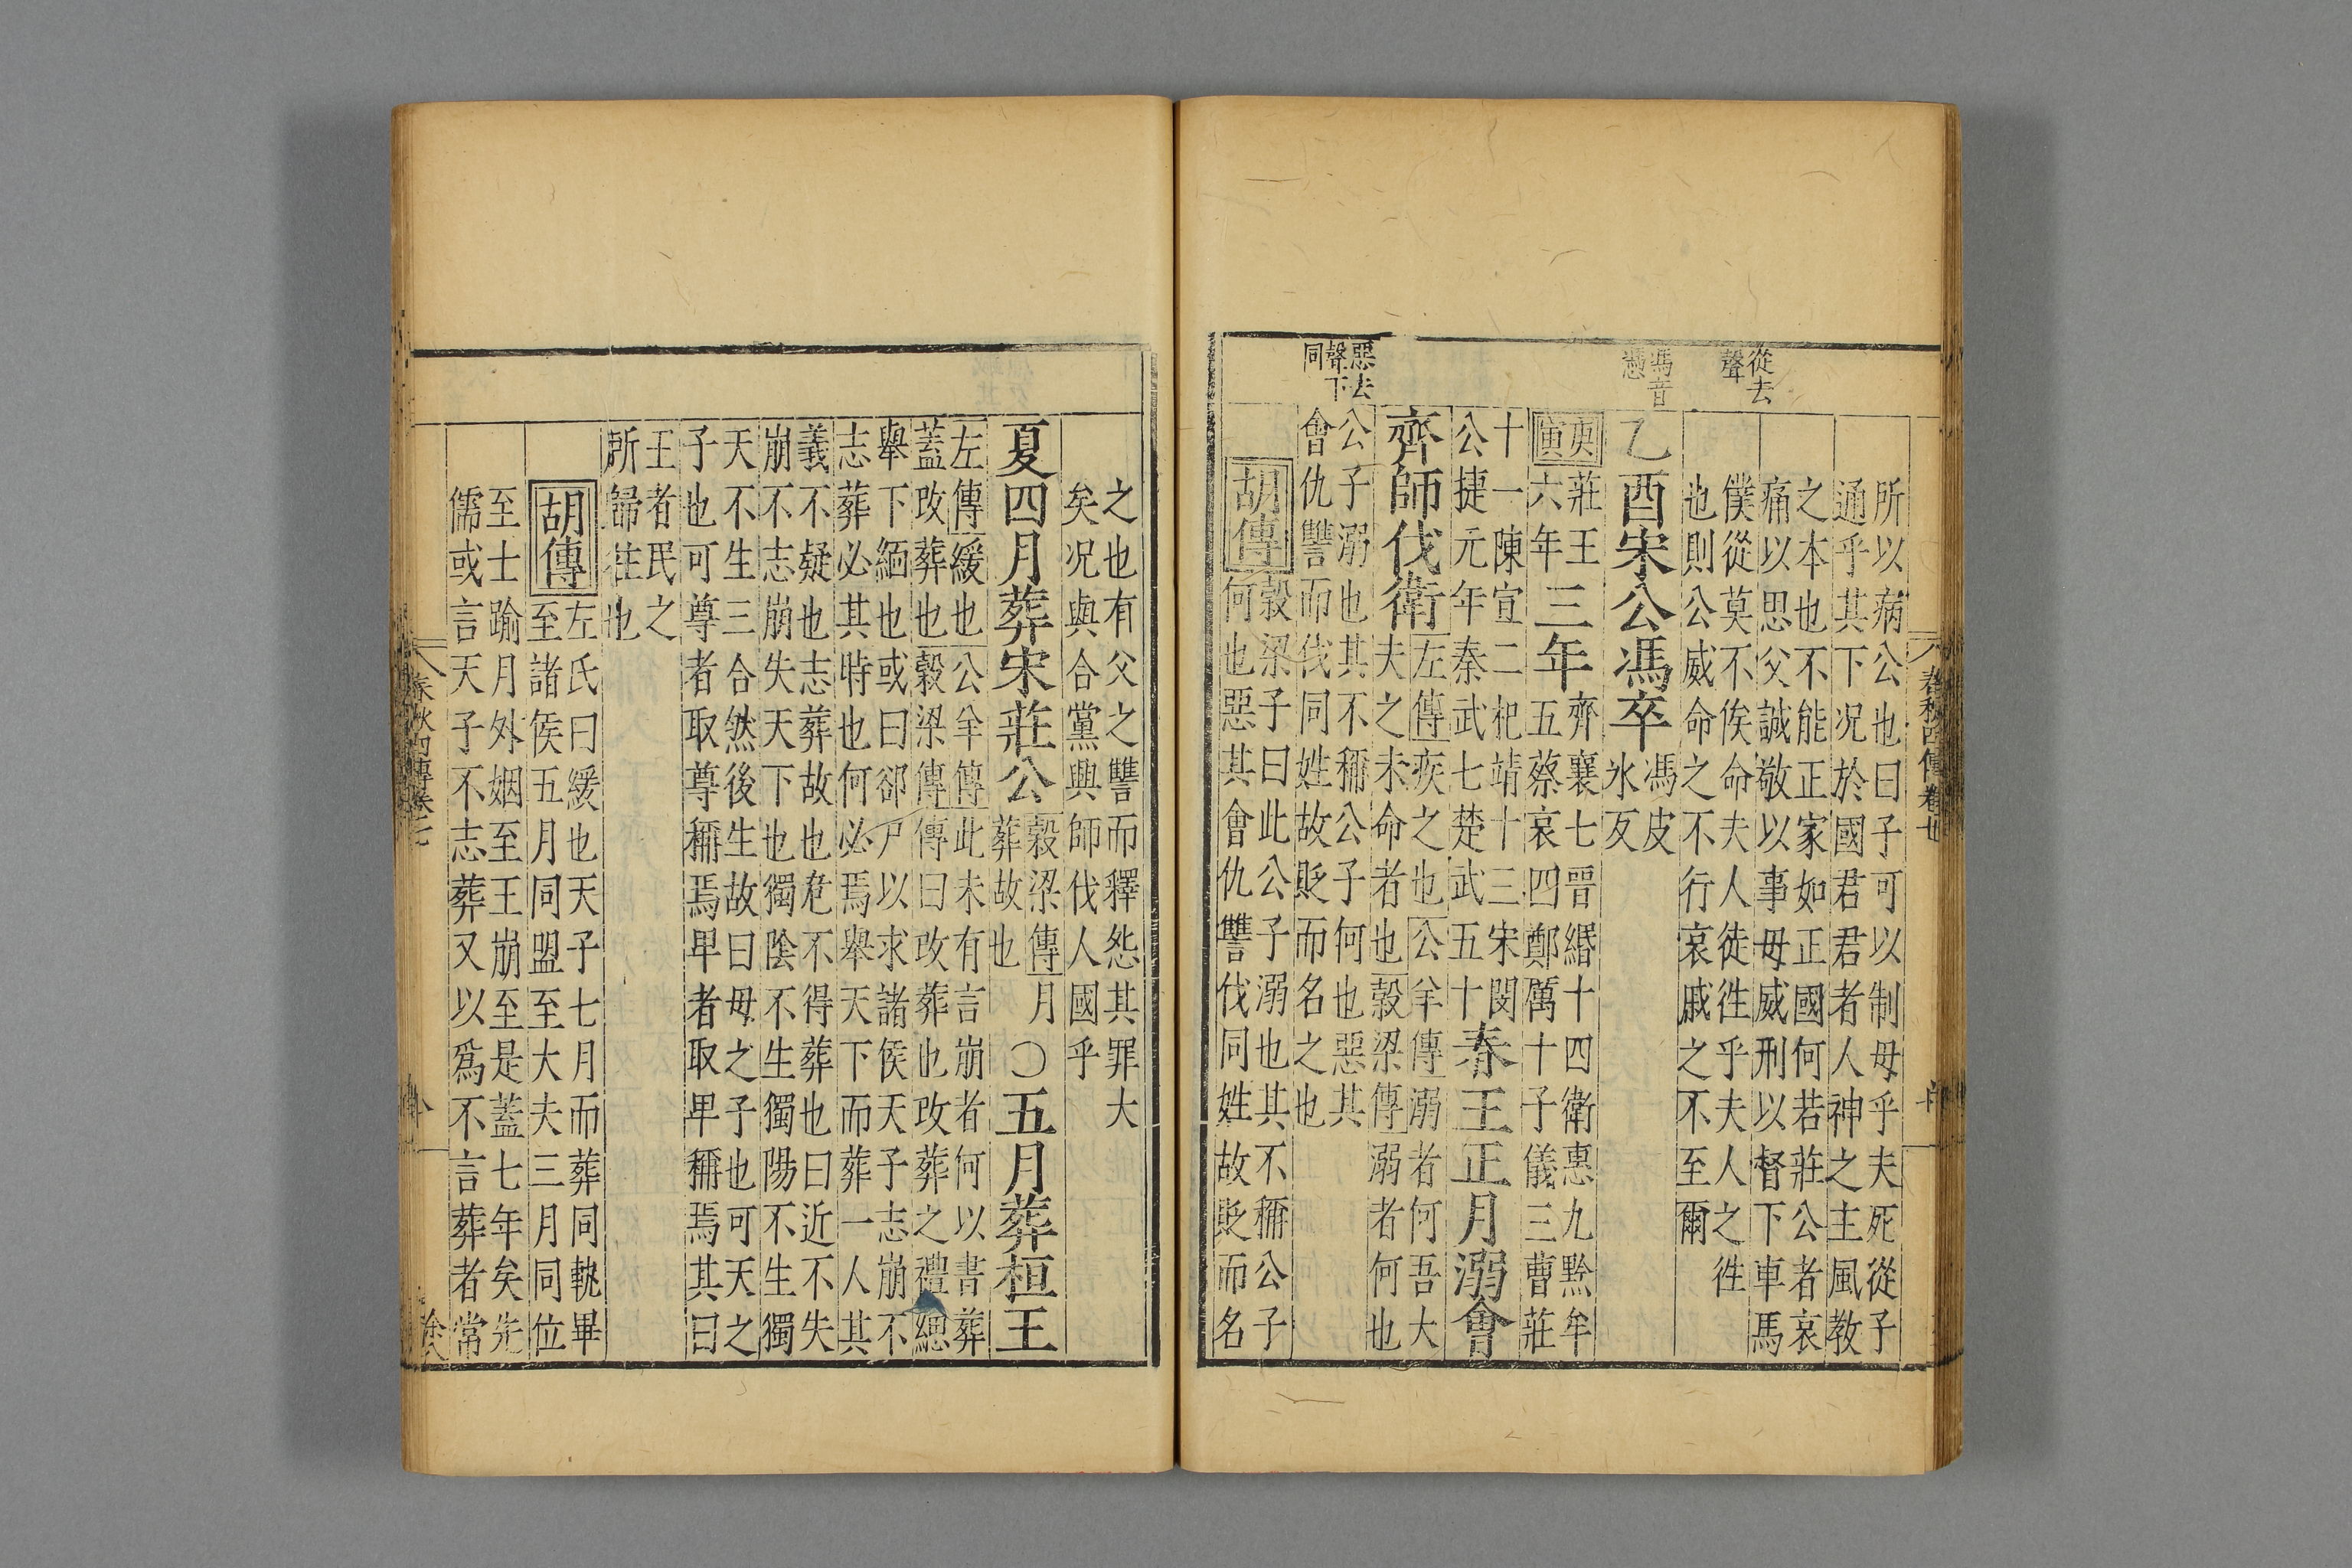 從去
聲
馮音
憑
惡去
聲下
同
春秋四傳卷七
所以病公也曰子可以制母乎夫死從子
通乎其下况於國君君者人神之主風教
之本也不能正家如正國何若莊公者哀
痛以思父誠敬以事母威刑以督下車馬
僕從莫不俟命夫人徒徃乎夫人之徃
也則公威命之不行哀戚之不至爾
乙酉宋公馮卒
馮皮
氷反
庚寅
莊王
六年
三年
齊襄七晉緡十四衛惠九黔牟
五蔡哀四鄭厲十子儀三曹莊
十一陳宣二杞靖十三宋閔
公捷元年秦武七楚武五十
春王正月溺會
齊師伐衛
左傳疾之也公羊傳溺者何吾大
夫之未命者也穀梁傳溺者何也
公子溺也其不稱公子何也惡其
會仇讐而伐同姓故貶而名之也
胡傳
穀梁子曰此公子溺也其不稱公子
何也惡其會仇讐伐同姓故貶而名
之也有父之讐而釋怨其罪大
矣况與合黨興師伐人國乎
夏四月葬宋莊公
穀梁傳月
葬故也
〇五月葬桓王
左傳緩也公羊傳此未有言崩者何以書葬
蓋改葬也穀梁傳傳曰改葬也改葬之禮緦
舉下緬也或曰郤尸以求諸侯天子志崩不
志葬必其時也何必焉舉天下而葬一人其
義不疑也志葬故也危不得葬也曰近不失
崩不志崩失天下也獨陰不生獨陽不生獨
天不生三合然後生故曰母之子也可天之
子也可尊者取尊稱焉卑者取卑稱焉其曰
王者民之
所歸徃也
胡傳
左氏曰緩也天子七月而葬同軌畢
至諸侯五月同盟至大夫三月同位
至士踰月外姻至王崩至是蓋七年矣先
儒或言天子不志葬又以爲不言葬者常
春秋四傳卷七